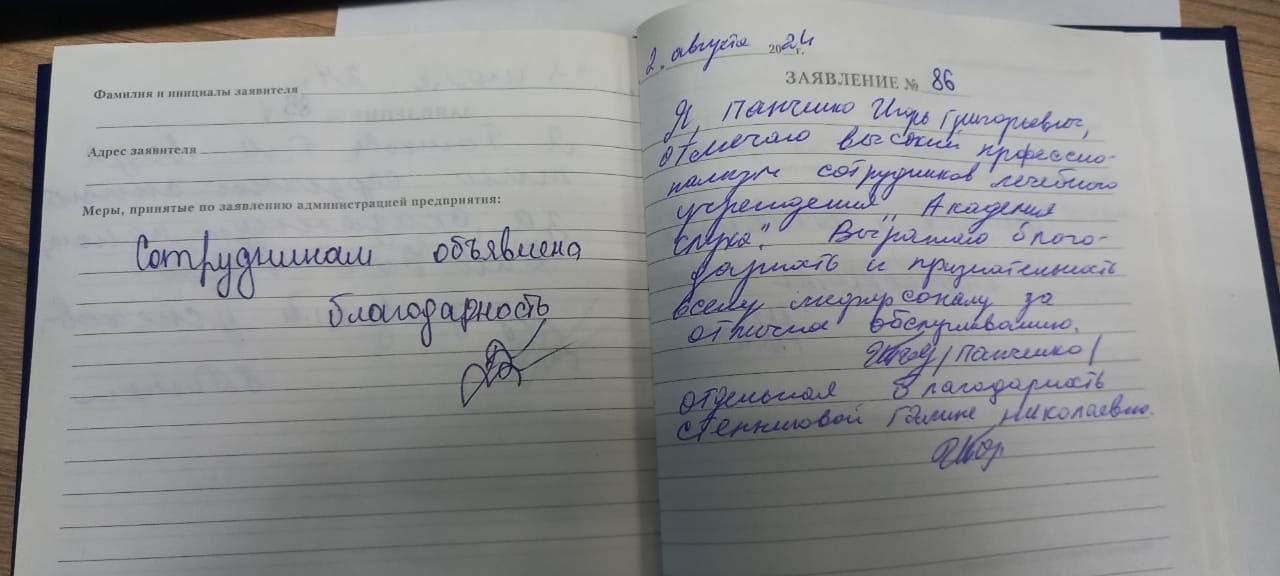 Фамилия и инициалы заявителя
Адрес заявителя
Меры, принятые по заявлению администрацией предприятия:
Сотрудникам объявлена
благодарность
2. августа 2024 г.
ЗАЯВЛЕНИЕ № 86
Я, Панченко Игорь Григорьевич,
отмечаю высокий профессио-
нализм сотрудников лечебного
учреждения „Академия
слуха". Выражаю благо-
дарность и признательность
всему медперсоналу за
отличное обслуживанию.
/Панченко/
отдельная благодарность
Стенниковой Галине Николаевне.